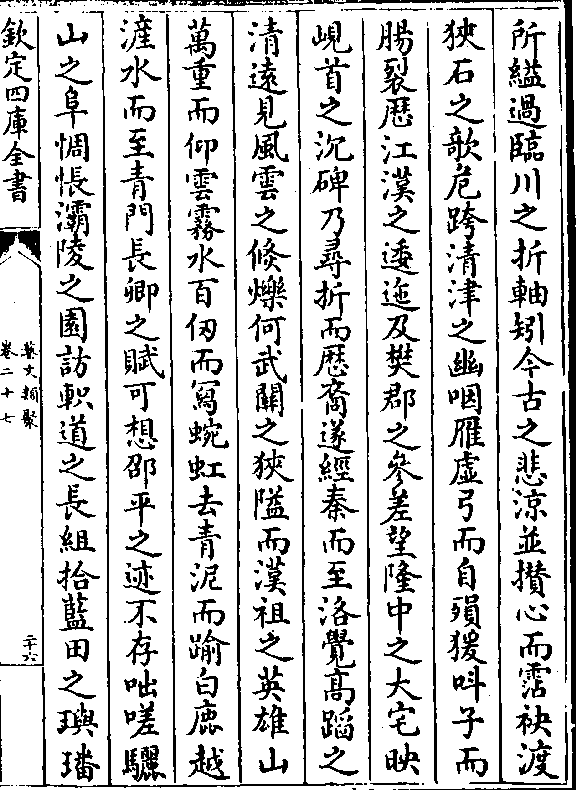 所縊過臨川之折軸矧今古之悲凉並攅心而霑袂渡
狹石之欹危跨清津之幽咽雁虛弓而自殞猨呌子而
腸裂歴江漢之逶迤及樊郡之參差望隆中之大宅映
峴首之沉碑乃尋折而歴裔遂經秦而至洛覺髙蹈之
清遠見風雲之倐爍何武闗之狹隘而漢祖之英雄山
萬重而仰雲霧水百仭而冩蜿虹去青泥而踰白鹿越
滻水而至青門長卿之賦可想邵平之迹不存咄嗟驪
山之阜惆悵灞陵之園訪軹道之長組拾藍田之璵璠
欽定四庫全書
藝文類聚
卷二十七
二十六